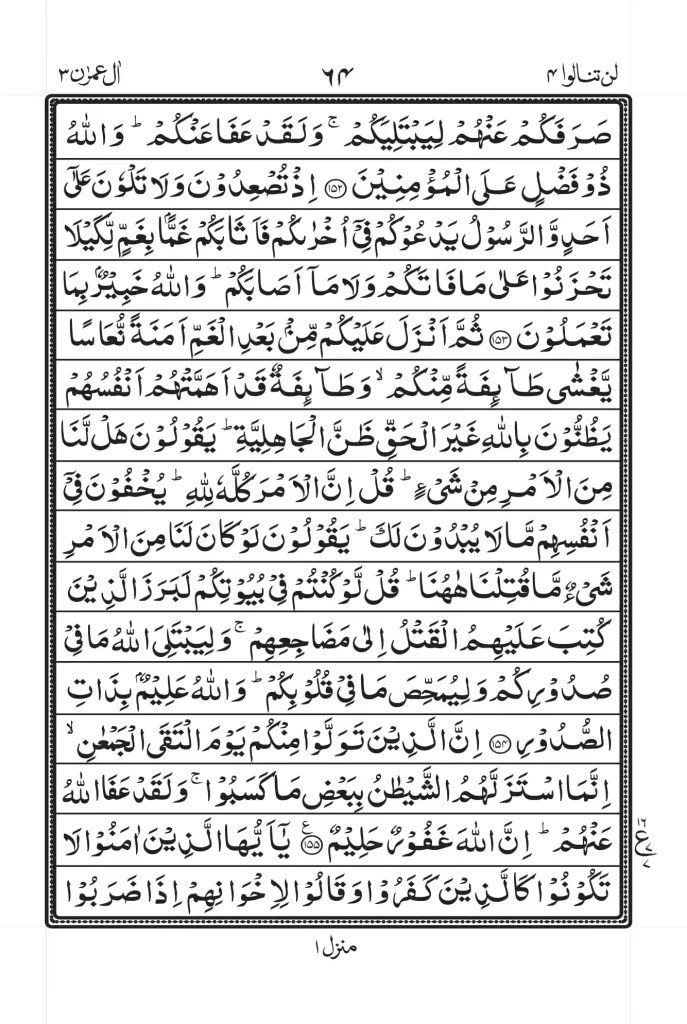 لن تنالوا ۴ ۶۴ اٰل عمرٰن ۳
صَرَفَكُمْ عَنْهُمْ لِيَبْتَلِيَكُمْ ۚ وَلَقَدْ عَفَا عَنْكُمْ ؕ وَاللّٰهُ
ذُوْ فَضْلٍ عَلَى الْمُؤْمِنِيْنَ ۝۱۵۲ اِذْ تُصْعِدُوْنَ وَلَا تَلْوٗنَ عَلٰٓى
اَحَدٍ وَّالرَّسُوْلُ يَدْعُوْكُمْ فِيْٓ اُخْرٰىكُمْ فَاَثَابَكُمْ غَمًّۢا بِغَمٍّ لِّكَيْلَا
تَحْزَنُوْا عَلٰى مَا فَاتَكُمْ وَلَا مَاۤ اَصَابَكُمْ ؕ وَاللّٰهُ خَبِيْرٌۢ بِمَا
تَعْمَلُوْنَ ۝۱۵۳ ثُمَّ اَنْزَلَ عَلَيْكُمْ مِّنْۢ بَعْدِ الْغَمِّ اَمَنَةً نُّعَاسًا
يَّغْشٰى طَآىِٕفَةً مِّنْكُمْ ۙ وَطَآىِٕفَةٌ قَدْ اَهَمَّتْهُمْ اَنْفُسُهُمْ
يَظُنُّوْنَ بِاللّٰهِ غَيْرَ الْحَقِّ ظَنَّ الْجَاهِلِيَّةِ ؕ يَقُوْلُوْنَ هَلْ لَّنَا
مِنَ الْاَمْرِ مِنْ شَيْءٍ ؕ قُلْ اِنَّ الْاَمْرَ كُلَّهٗ لِلّٰهِ ؕ يُخْفُوْنَ فِيْٓ
اَنْفُسِهِمْ مَّا لَا يُبْدُوْنَ لَكَ ؕ يَقُوْلُوْنَ لَوْ كَانَ لَنَا مِنَ الْاَمْرِ
شَيْءٌ مَّا قُتِلْنَا هٰهُنَا ؕ قُلْ لَّوْ كُنْتُمْ فِيْ بُيُوْتِكُمْ لَبَرَزَ الَّذِيْنَ
كُتِبَ عَلَيْهِمُ الْقَتْلُ اِلٰى مَضَاجِعِهِمْ ۚ وَلِيَبْتَلِيَ اللّٰهُ مَا فِيْ
صُدُوْرِكُمْ وَلِيُمَحِّصَ مَا فِيْ قُلُوْبِكُمْ ؕ وَاللّٰهُ عَلِيْمٌۢ بِذَاتِ
الصُّدُوْرِ ۝۱۵۴ اِنَّ الَّذِيْنَ تَوَلَّوْا مِنْكُمْ يَوْمَ الْتَقَى الْجَمْعٰنِ ۙ
اِنَّمَا اسْتَزَلَّهُمُ الشَّيْطٰنُ بِبَعْضِ مَا كَسَبُوْا ۚ وَلَقَدْ عَفَا اللّٰهُ
عَنْهُمْ ؕ اِنَّ اللّٰهَ غَفُوْرٌ حَلِيْمٌ ۝۱۵۵ع يٰۤاَيُّهَا الَّذِيْنَ اٰمَنُوْا لَا
۱۶ ع ۷ ۷
تَكُوْنُوْا كَالَّذِيْنَ كَفَرُوْا وَقَالُوْا لِاِخْوَانِهِمْ اِذَا ضَرَبُوْا
منزل ۱